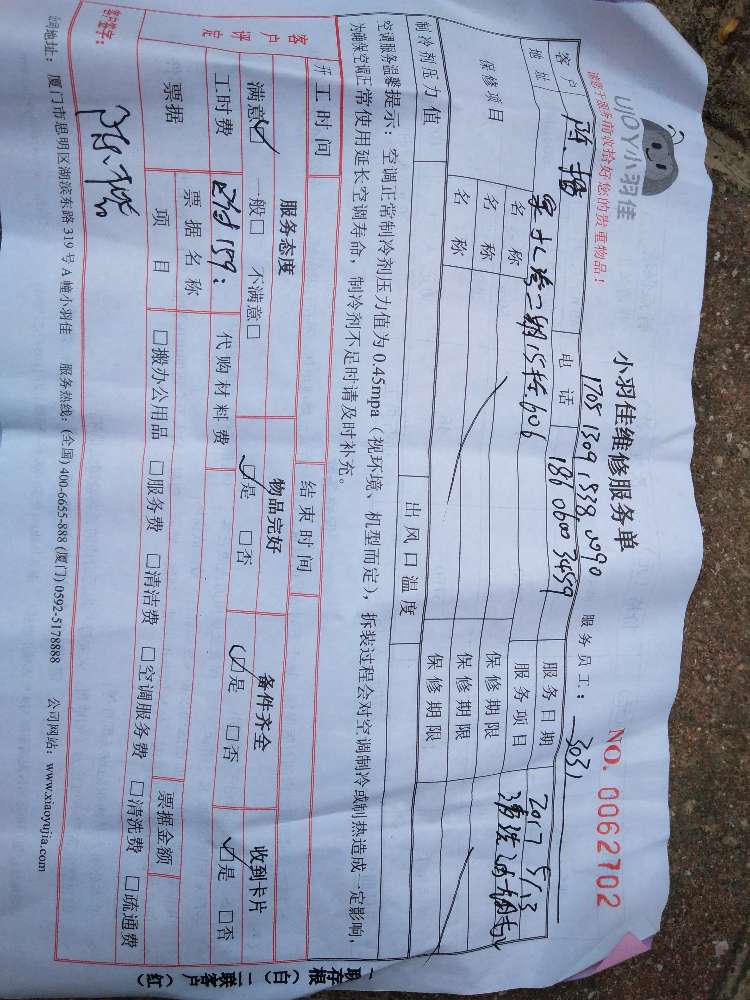 UJOY小羽佳
小羽佳维修服务单
NO. 0062702
请您于服务前收拾好您的贵重物品！
170513091838 0090
服务员工： 3031
客户
电话
186 0600 3459
服务日期
2017 5/13
地址
15栋.606
服务项目
清洗油烟机
保修项目
名称
保修期限
名称
保修期限
名称
保修期限
制冷剂压力值
出风口温度
空调服务温馨提示：空调正常制冷剂压力值为0.45mpa（视环境、机型而定），拆装过程会对空调制冷或制热造成一定影响，
为确保空调正常使用延长空调寿命，制冷剂不足时请及时补充。
开工时间
结束时间
客户评定
服务态度
物品完好
备件齐全
收到卡片
满意☑ 一般□ 不满意□
☑是 □否
☑是 □否
☑是 □否
工时费
159：
代购材料费
票据
票据名称
票据金额
项目
□搬办公用品 □服务费 □清洁费 □空调服务费 □清洗费 □疏通费
客户签字：
公司地址：厦门市思明区湖滨东路319号A幢小羽佳 服务热线：(全国) 400-6655-888 (厦门) 0592-5178888 公司网站：www.xiaoyujia.com
一联存根（白）二联客户（红）